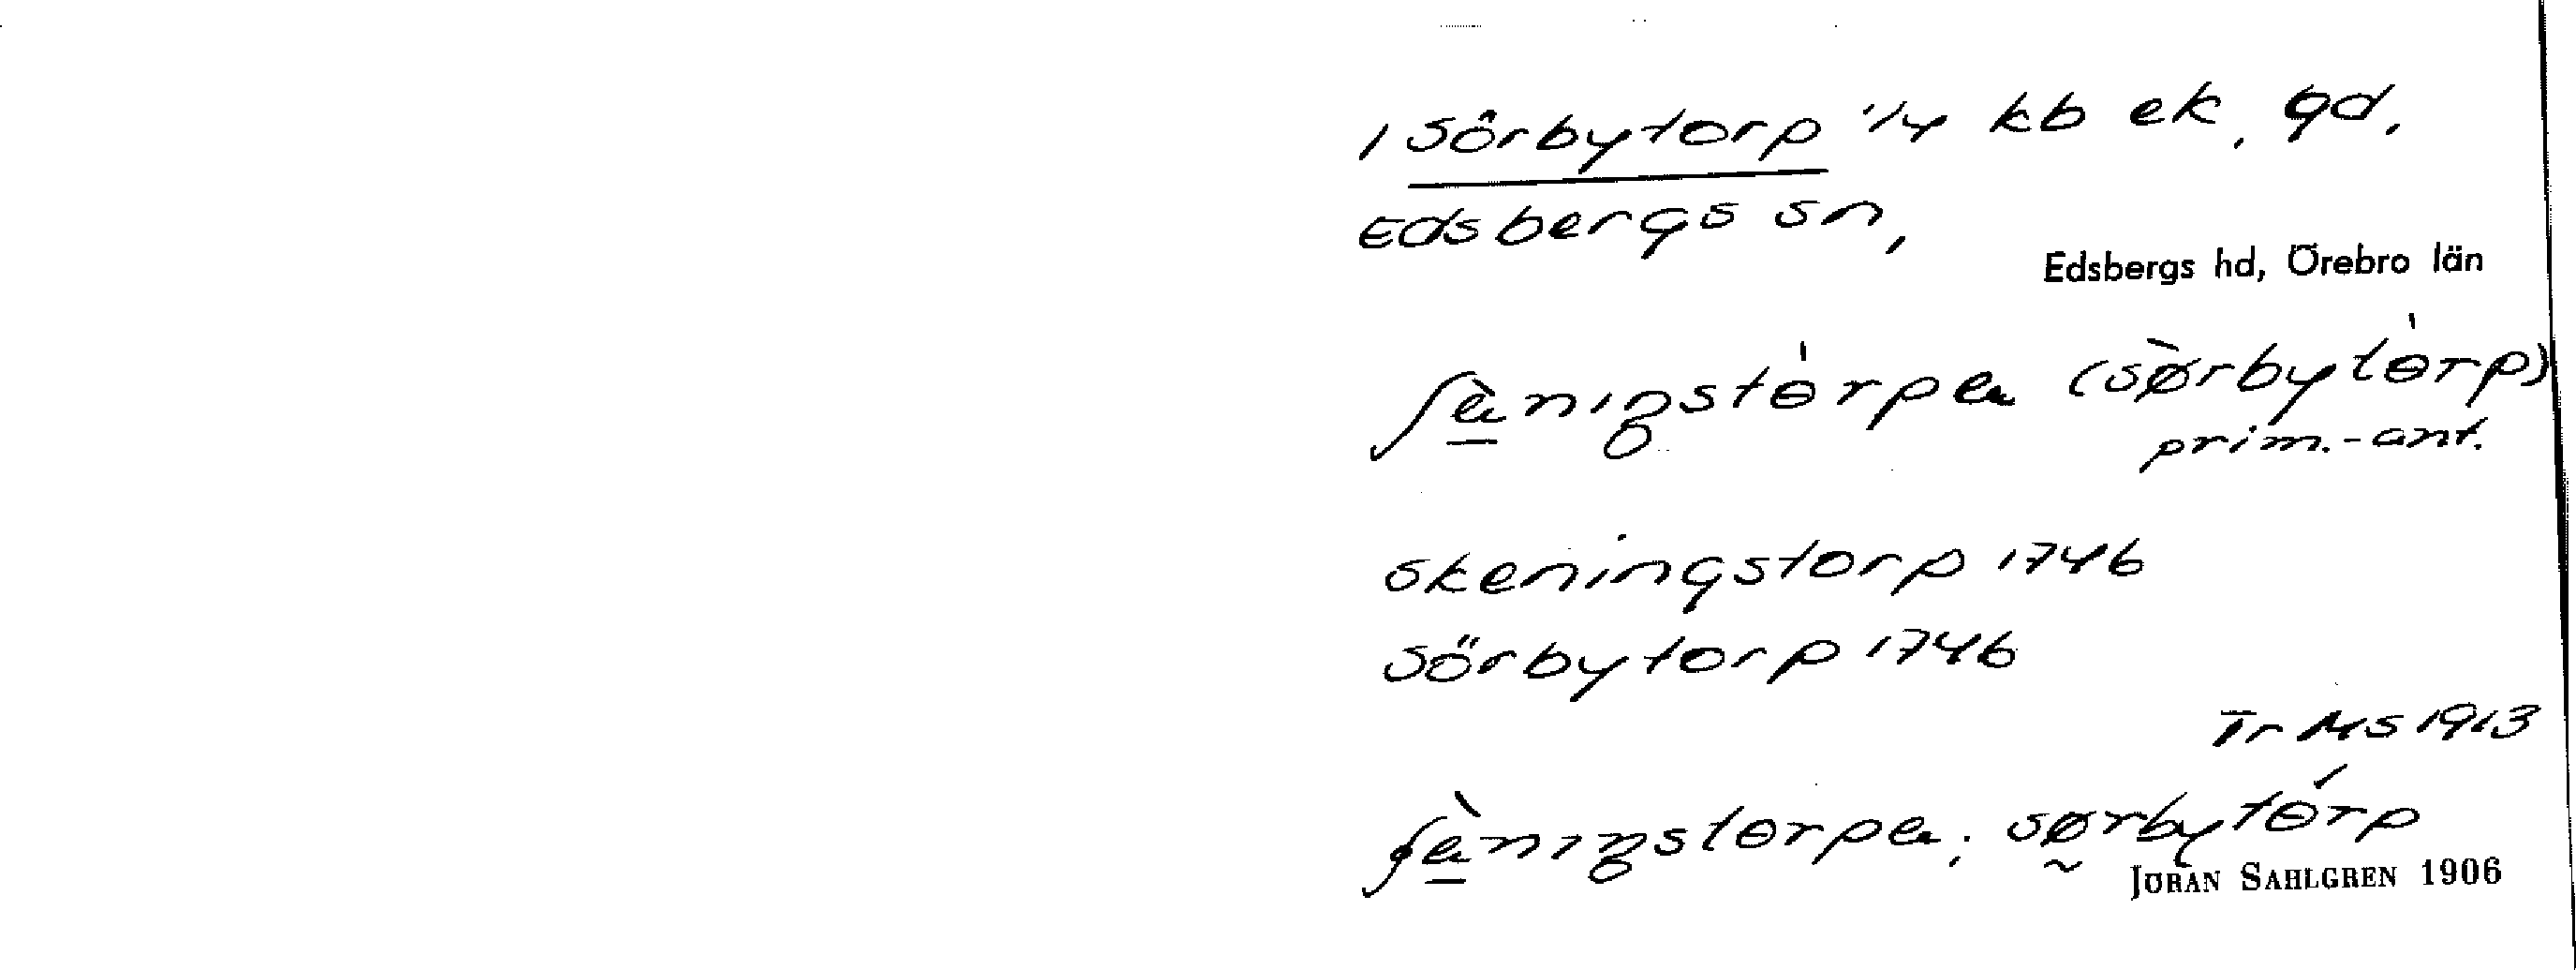 1 Sörbytorp 1/4 kb ek, gd,
Edsbergs sn,
Edsbergs hd, Örebro län
ʃæ̀nıŋstɵ̀rpa (sø̀rbytɵ̀rp)
prim.-ant.
Skeningstorp 1746
Sörbytorp 1746
Tr MS 1913
ʃæ̀nıŋstɵrpa; sørbytɵ́rp
JÖRAN SAHLGREN 1906